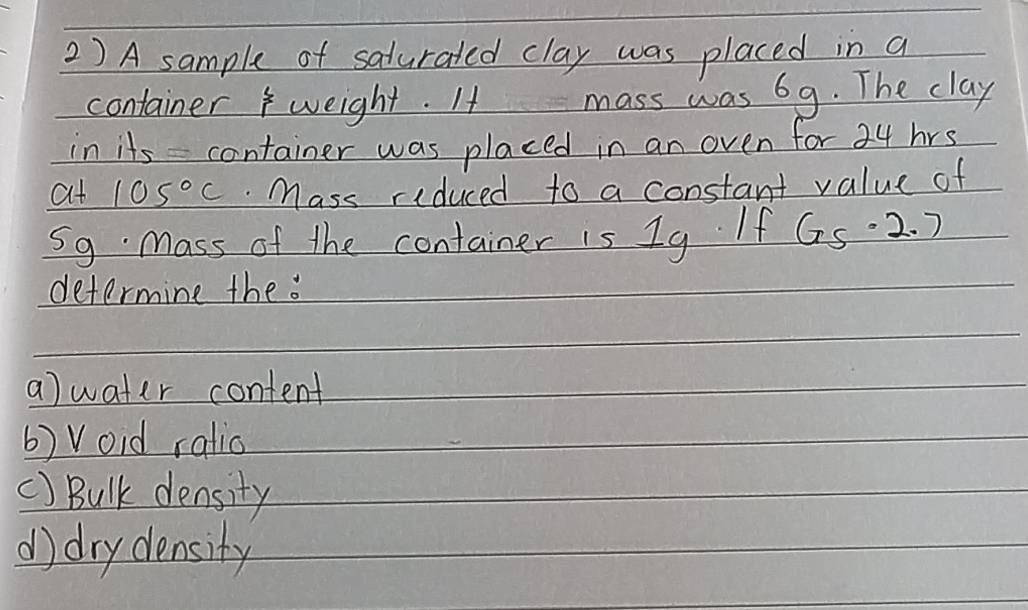 2) A sample of saturated clay was placed in a
container & weight. It mass was 6g. The clay
in its container was placed in an oven for 24 hrs
at 105°C. Mass reduced to a constant value of
5g. Mass of the container is 1g. If Gs = 2.7
determine the:
a) water content
b) Void ratio
c) Bulk density
d) dry density